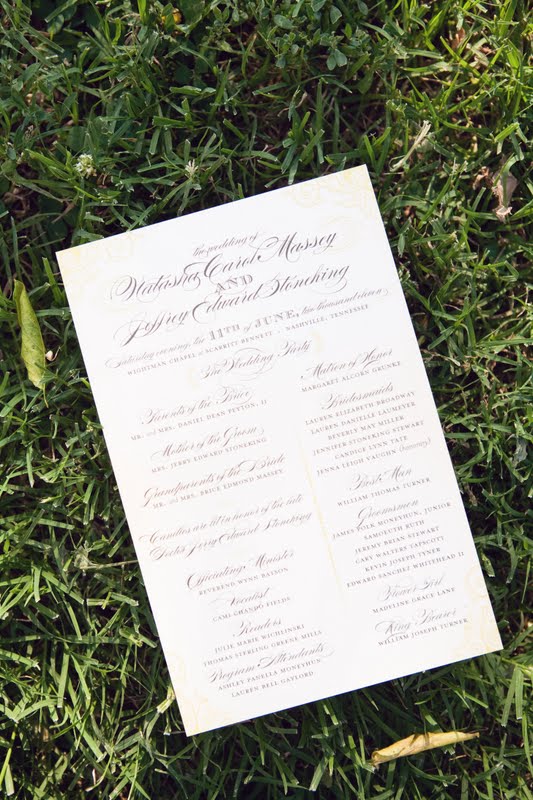 the wedding of
Natasha Carol Massey
AND
Jeffrey Edward Stoneking
Saturday evening, the 11TH of JUNE, two thousand eleven
WIGHTMAN CHAPEL at SCARRITT BENNETT • NASHVILLE, TENNESSEE
The Wedding Party
Parents of the Bride
MR. and MRS. DANIEL DEAN PEYTON, II
Mother of the Groom
MRS. JERRY EDWARD STONEKING
Grandparents of the Bride
MR. and MRS. BRICE EDMOND MASSEY
Candles are lit in honor of the late
Doctor Jerry Edward Stoneking
Officiating Minister
REVEREND WYNN BATSON
Vocalist
CAMI-CHANDO FIELDS
Readers
JULIE MARIE WICHLINSKI
THOMAS STERLING GREENE MILLS
Program Attendants
ASHLEY PANELLA MONEYHUN
LAUREN BELL GAYLORD
Matron of Honor
MARGARET ALCORN GRUNKE
Bridesmaids
LAUREN ELIZABETH BROADWAY
LAUREN DANIELLE LAUMEYER
BEVERLY MAY MILLER
JENNIFER STONEKING STEWART
CANDICE LYNN TATE
JENNA LEIGH VAUGHN (honorary)
Best Man
WILLIAM THOMAS TURNER
Groomsmen
JAMES POLK MONEYHUN, JUNIOR
SAMOLUTH RUTH
JEREMY BRIAN STEWART
GARY WALTERS TAPSCOTT
KEVIN JOSEPH TYNER
EDWARD SANCHEZ WHITEHEAD II
Flower Girl
MADELINE GRACE LANE
Ring Bearer
WILLIAM JOSEPH TURNER